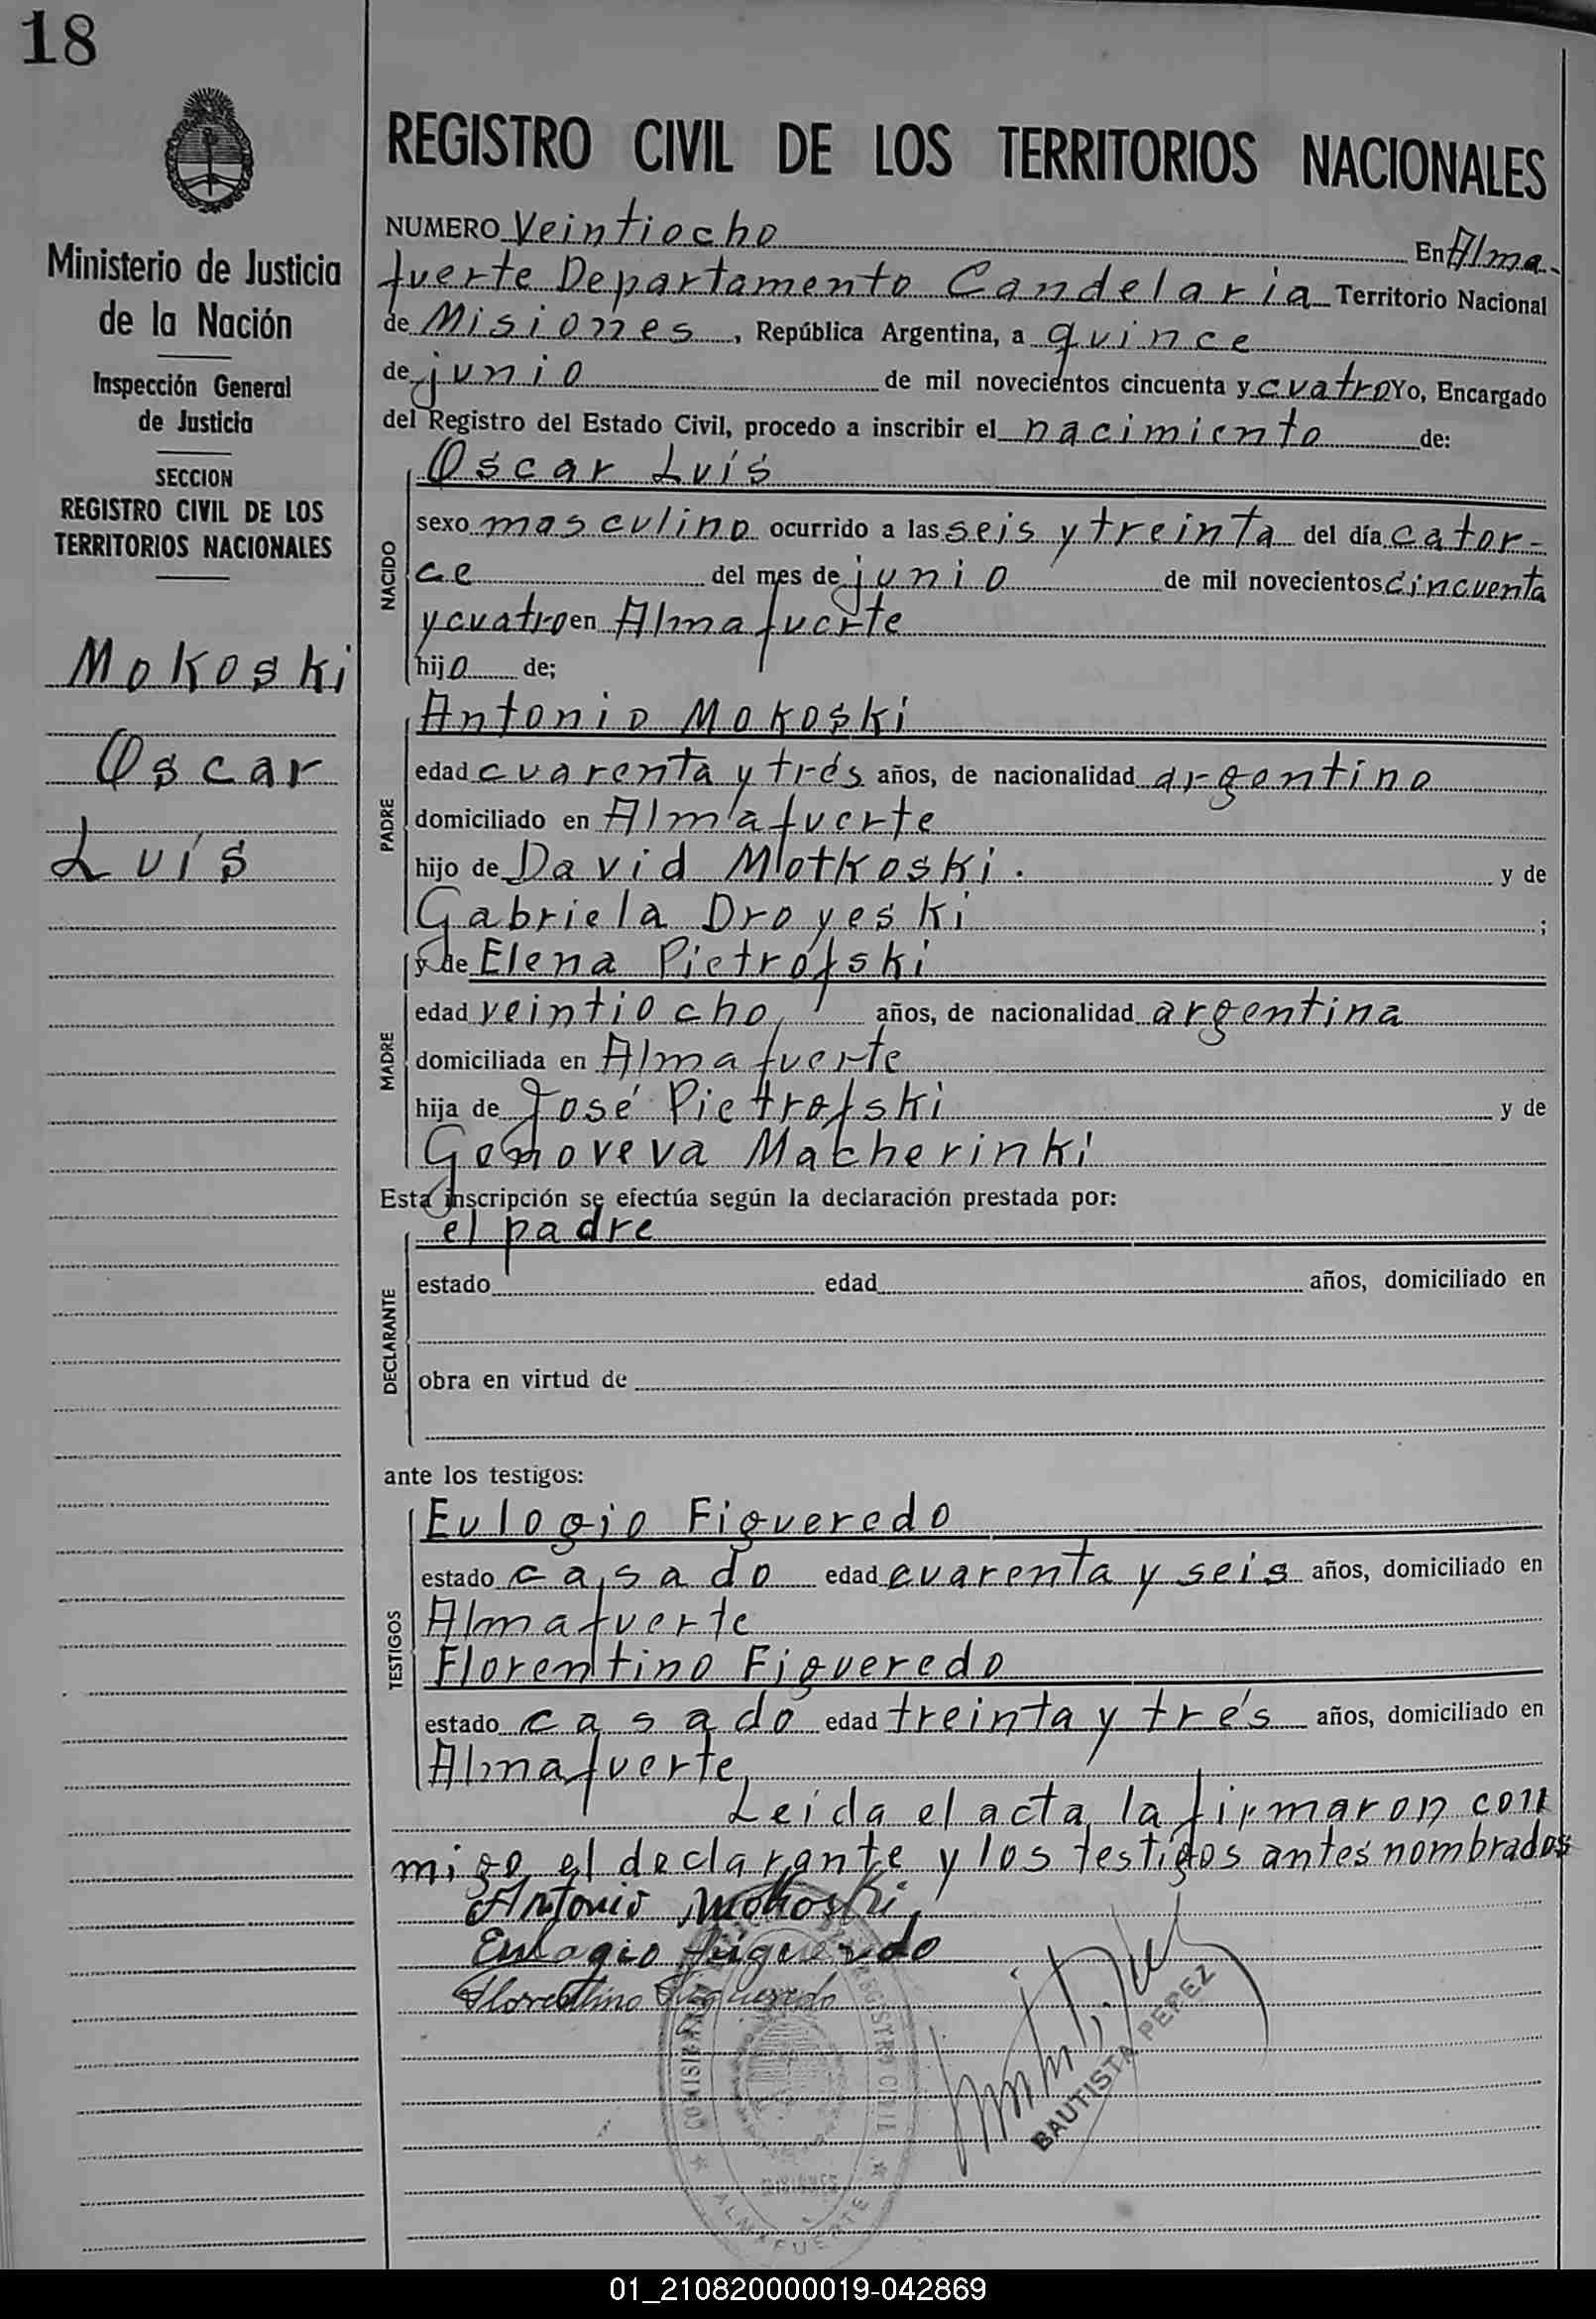 18
Ministerio de Justicia
de la Nación
Inspección General
de Justicia
SECCION
REGISTRO CIVIL DE LOS
TERRITORIOS NACIONALES
Mokoski
Oscar
Luís
REGISTRO CIVIL DE LOS TERRITORIOS NACIONALES
NUMERO Veintiocho En Alma-
fuerte Departamento Candelaria Territorio Nacional
de Misiones, República Argentina, a quince
de junio de mil novecientos cincuenta y cuatro Yo, Encargado
del Registro del Estado Civil, procedo a inscribir el nacimiento de:
NACIDO
Oscar Luís
sexo masculino ocurrido a las seis y treinta del día cator-
ce del mes de junio de mil novecientos cincuenta
y cuatro en Almafuerte
hijo de;
PADRE
Antonio Mokoski
edad cuarenta y trés años, de nacionalidad argentino
domiciliado en Almafuerte
hijo de David Motkoski. y de
Gabriela Droyeski ;
MADRE
y de Elena Pietrofski
edad veintiocho, años, de nacionalidad argentina
domiciliada en Almafuerte
hija de José Pietrofski y de
Genoveva Macherinki
Esta inscripción se efectúa según la declaración prestada por:
DECLARANTE
el padre
estado edad años, domiciliado en
obra en virtud de
ante los testigos:
TESTIGOS
Eulogio Figueredo
estado casado edad cuarenta y seis años, domiciliado en
Almafuerte
Florentino Figueredo
estado casado edad treinta y trés años, domiciliado en
Almafuerte
Leída el acta, la firmaron con
migo el declarante y los testigos antes nombrados
Antonio Mokoski
Eulogio Figueredo
Florentino Figueredo
BAUTISTA PEREZ
REGISTRO CIVIL
MISIONES
ALMAFUERTE
01_210820000019-042869